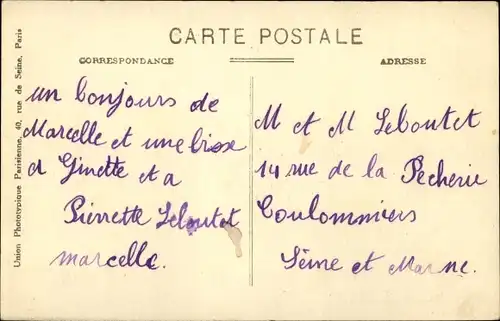 CARTE POSTALE
CORRESPONDANCE
ADRESSE
Union Phototypique Parisienne, 40, rue de Seine, Paris
un bonjours de
Marcelle et une bisse
a Ginette et a
Pierrette Leboutet
marcelle.
M et M Leboutet
14 rue de la Pecherie
Coulommiers
Seine et Marne.